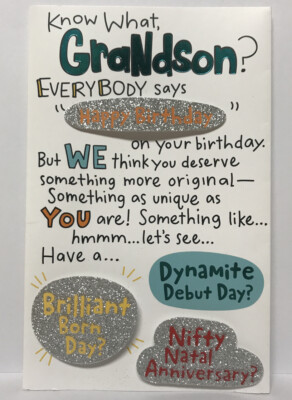 KNOW WHAT,
GRaNdSON?
EVERYBODY says
"Happy Birthday"
on your birthday.
But WE think you deserve
something more original—
Something as unique as
YOU are! Something like...
hmmm...let's see...
Have a...
Dynamite
Debut Day?
Brilliant
Born
Day?
Nifty
Natal
Anniversary?